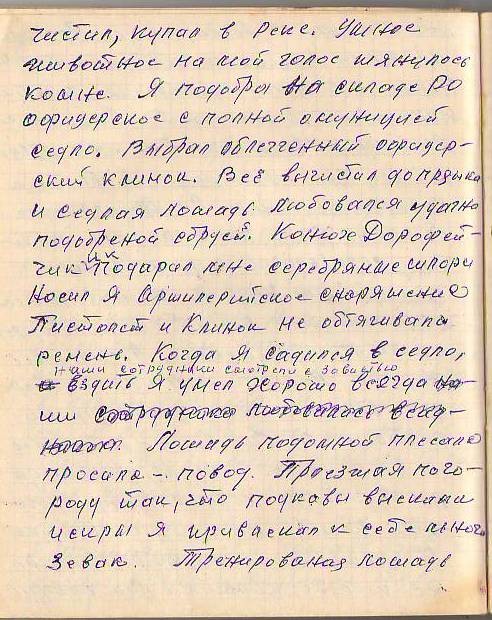 чистил, купал в реке. Умное
животное на мой голос тянулось
ко мне. Я подобрал на складе РО
офицерское с полной амуницией
седло. Выбрал облегченный офицер-
ский клинок. Всё вычистил до
и седлая лошадь любовался удачно
подобраной сбруей. Конюх Дорофей-
чик подарил мне серебряные шпоры
Носил я Артилерийское снаряжение
Пистолет и Клинок не обтягивали
ремень. Когда я садился в седло,
Наши сотрудники смотрели с завистью
ездить я умел хорошо всегда
Лошадь подомной плесала
просила - повод. Проезжая по го-
роду так, что подкавы высекали
искры я привлекал к себе много
зевак. Тренированая лошадь